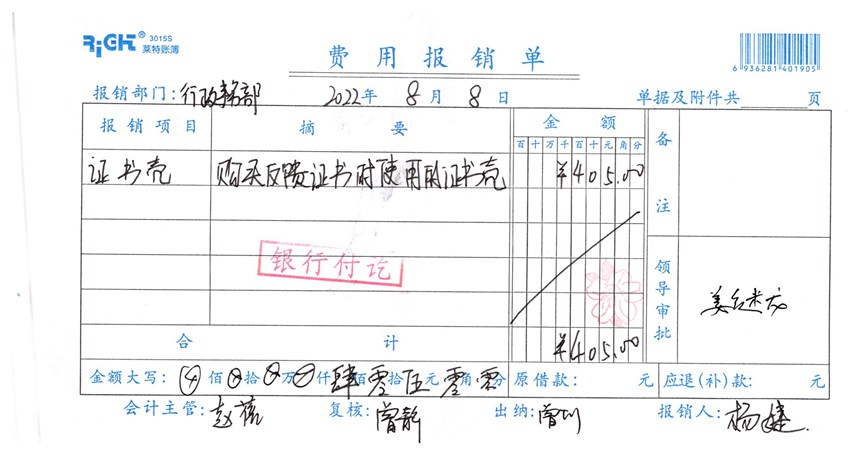 RiGHT® 3015S
莱特账簿
费用报销单
6 936281 401905
报销部门：行政务部 2022年 8月 8日 单据及附件共 页
报销项目 摘要 金额 备注
百十万千百十元角分
证书壳 购买反馈证书时使用的证书壳 ¥405.00
银行付讫
领导审批
合计 ¥405.00
金额大写： 佰 拾 万 仟 肆佰 零拾 伍元 零角 零分 原借款： 元 应退(补)款： 元
会计主管： 复核：曾静 出纳：曾 报销人：杨